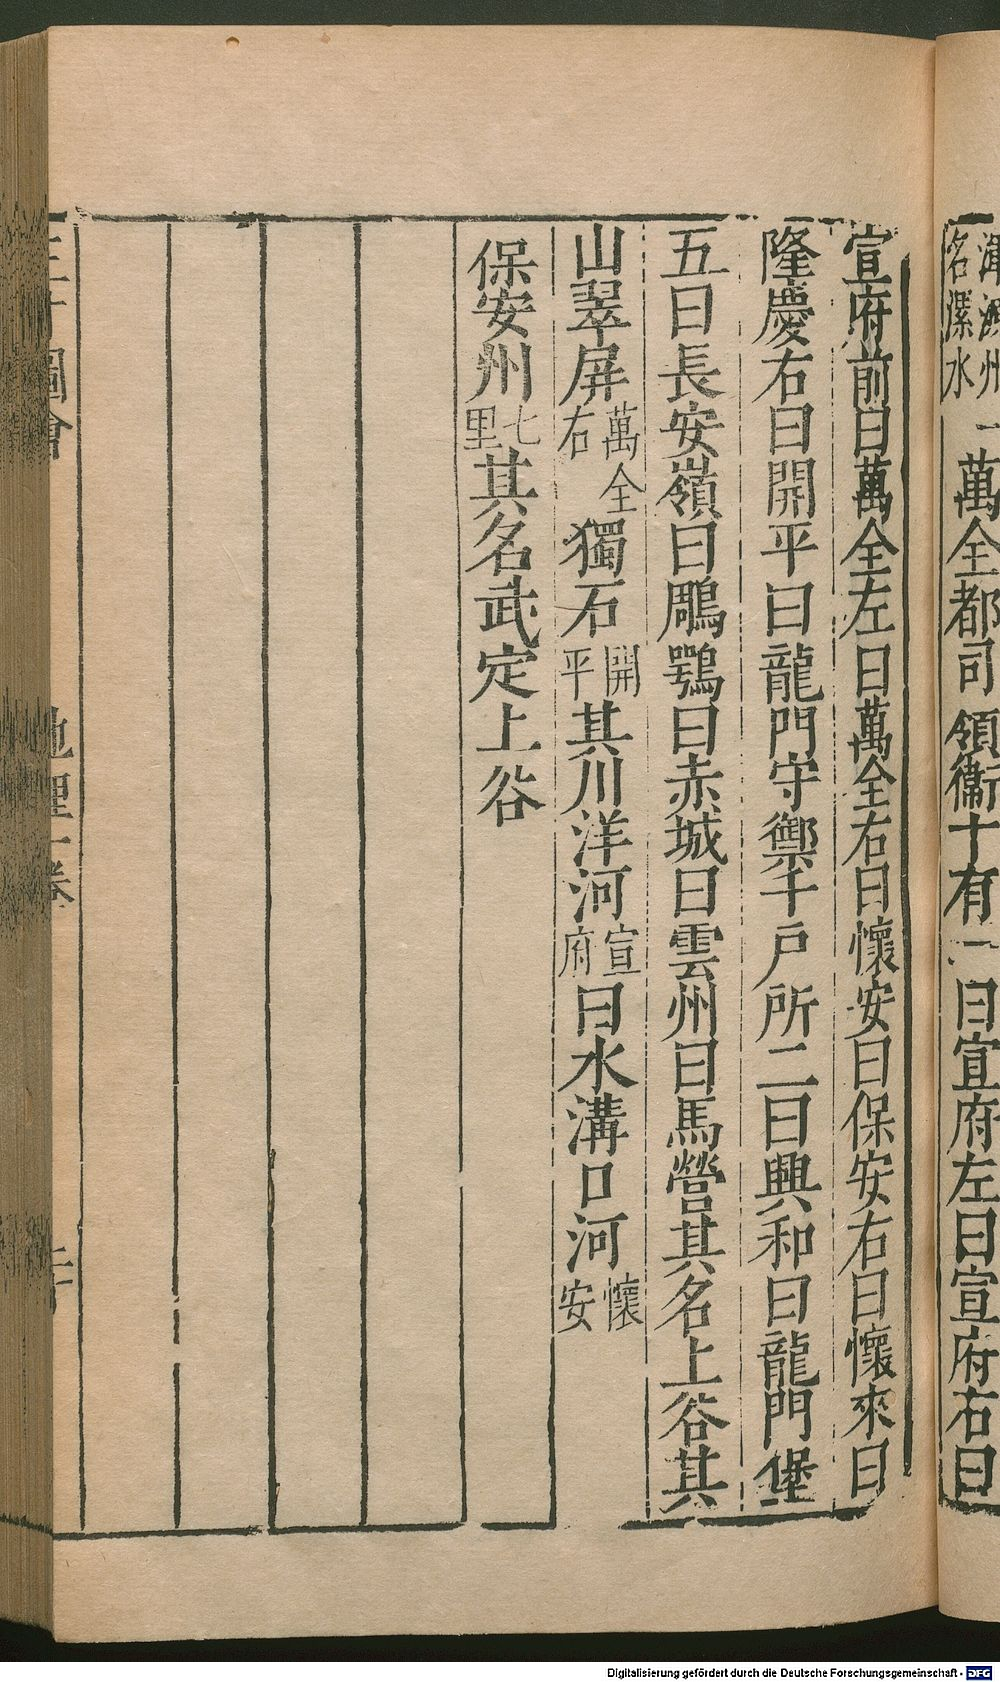 名漯水 一萬全都司領衛十有一曰宣府左曰宣府右曰
宣府前曰萬全左曰萬全右曰懷安曰保安右曰懷來曰
隆慶右曰開平曰龍門守禦千戶所二曰興和曰龍門堡
五曰長安嶺曰鵰鶚曰赤城曰雲州曰馬營其名上谷其
山翠屏萬全右獨石開平其川洋河宣府曰水溝口河懷安
保安州七里其名武定上谷
圖會
地理一卷
Digitalisierung gefördert durch die Deutsche Forschungsgemeinschaft - DFG